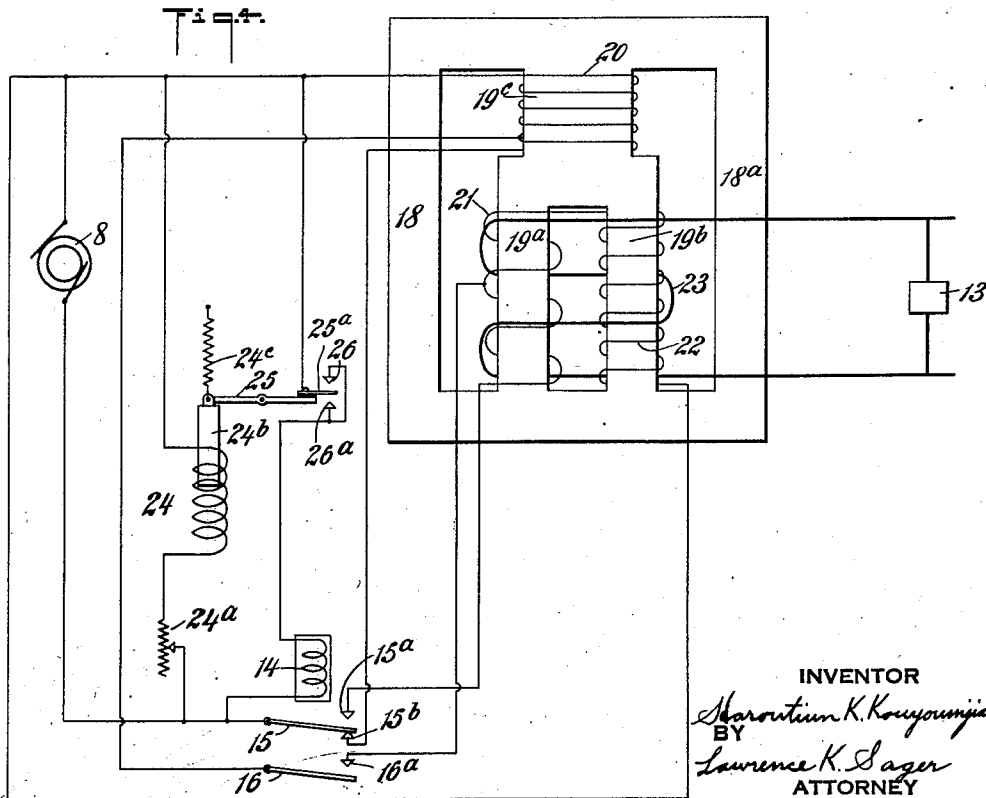 Fig. 4.
20
19c
18a
18
21
19a
19b
8
23
13
25a
26
24c
25
22
24b
26a
24
24a
14
15a
15
15b
16a
16
INVENTOR
Haroutiun K. Kouyoumjia
BY
Lawrence K. Sager
ATTORNEY